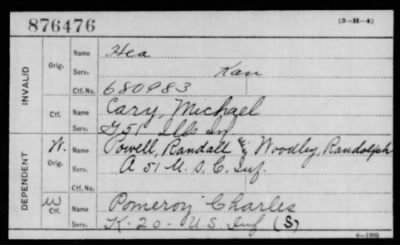 876476 (3-H-4)
INVALID
Orig. Name Hea
Serv. Kan
Ctf. No. 680983
Ctf. Name Cary, Michael
Serv. 51 Ills Inf
DEPENDENT
W. Orig. Name Powell, Randall & Woodley, Randolph
Serv. A 51 U.S.C. Inf.
W Ctf. Name Pomeroy Charles
Serv. K-20- U.S. Inf (S)